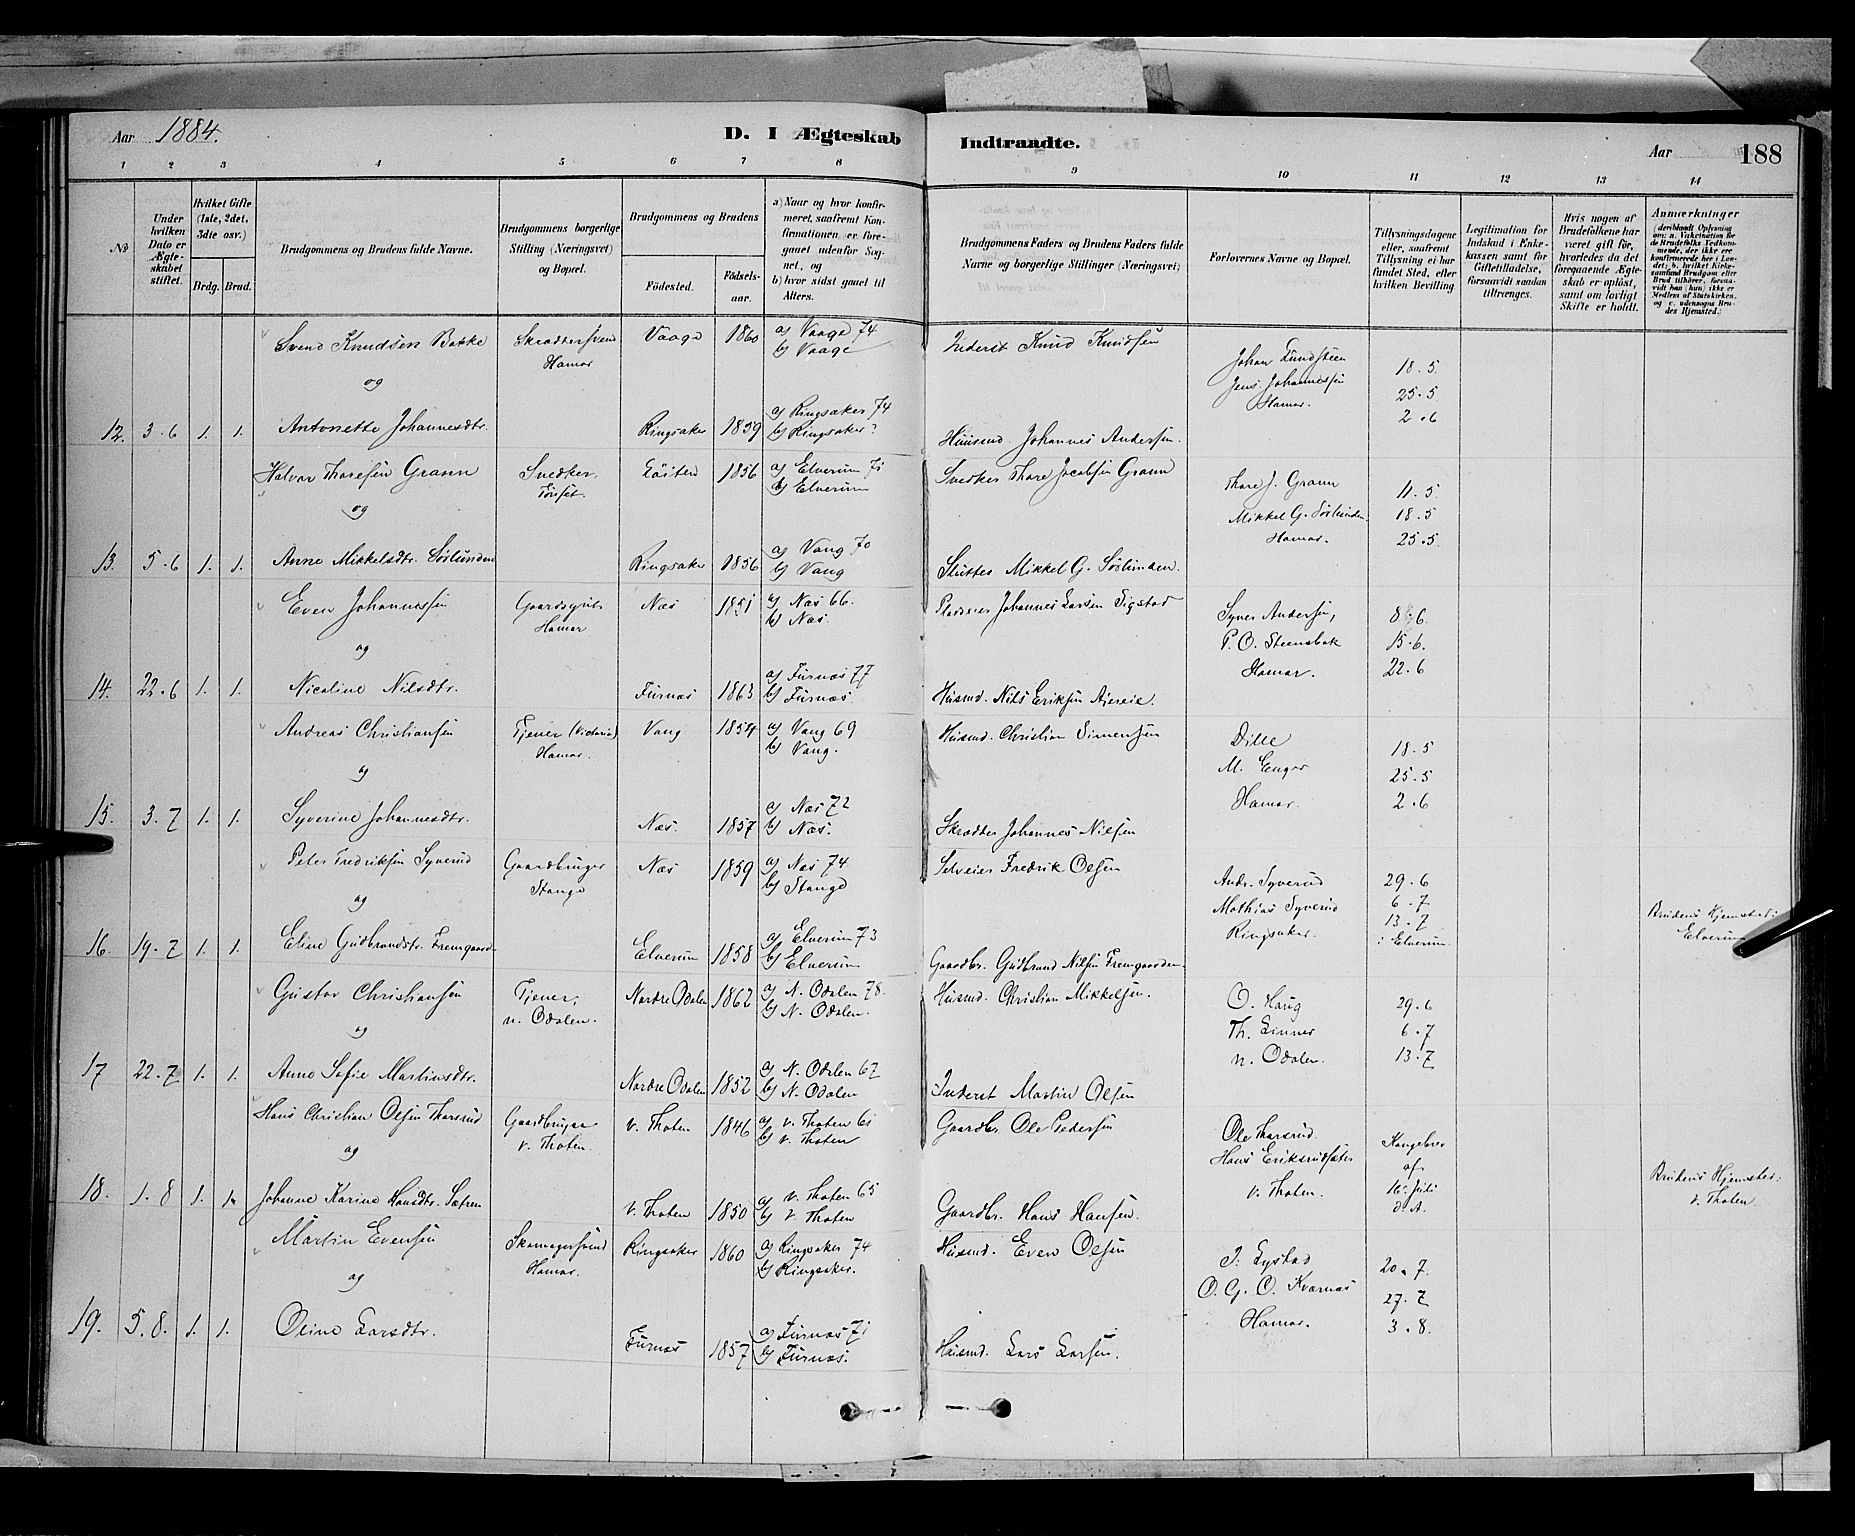 Aar 1884.
D. I Ægteskab Indtraadte.
Aar 188
1 2 3 4 5 6 7 8 9 10 11 12 13 14
No
Under hvilken Dato er Ægteskabet stiftet.
Hvilket Gifte (1ste, 2det, 3dte osv.)
Brdg. Brud.
Brudgommens og Brudens fulde Navne.
Brudgommens borgerlige Stilling (Næringsvei) og Bopæl.
Brudgommens og Brudens
Födested. Födselsaar.
a) Naar og hvor konfirmeret, saafremt Konfirmationen er foregaaet udenfor Sognet, og
b) hvor sidst gaaet til Alters.
Brudgommens Faders og Brudens Faders fulde Navne og borgerlige Stillinger (Næringsvei)
Forlovernes Navne og Bopæl.
Tillysningsdagene eller, saafremt Tillysning ei har fundet Sted, efter hvilken Bevilling
Legitimation for Indskud i Enkekassen samt for Giftetilladelse, forsaavidt saadan tiltrænges.
Hvis nogen af Brudefolkene har været gift för, hvorledes da det foregaaende Ægteskab er oplöst, samt om lovligt Skifte er holdt.
Anmærkninger (deriblandt Oplysning om: a. Vakcination for de Brudefolks Vedkommende, der ikke ere konfirmerede her i Landet; b. hvilket Kirkesamfund Brudgom eller Brud tilhörer, forsaavidt han (hun) ikke er Medlem af Statskirken, og c. udensogns Brudes Hjemsted.)
Svend Knudsen Bakke Skrædersvend Vaage 1860 a) Vaage 74 Inderst Knud Knudsen
Hamar b) Vaage Johan Lundsteen 18.5.
og Jens Johannesen 25.5
Hamar. 2.6
12. 3.6 1. 1. Antonette Johannesdtr. Ringsaker 1859 a) Ringsaker 74
b) Ringsaker Huusmd. Johannes Andersen.
Halvor Thoresen Grann Snedker, Löiten 1856 a) Elverum 71 Snedker Thore Jacobsen Grann
Tönset. b) Elverum Thore J. Grann 11.5.
og Mikkel G. Sörlunden. 18.5
Hamar. 25.5.
13. 5.6 1. 1. Anne Mikkelsdtr. Sörlunden Ringsaker 1856 a) Vang 70
b) Vang Mikkel G. Sörlunden.
Even Johannesen Gaardsgut Næs 1851 a) Næs 66. Johannes Larsen Sigstad
Hamar b) Næs. Syver Andersen, 8.6.
og P. O. Steensbak 15.6.
Hamar. 22.6
14. 22.6 1. 1. Nicoline Nilsdtr. Furnæs 1863 a) Furnæs 77
b) Furnæs. Husmd. Nils Eriksen
Andreas Christiansen Tjener (Victoria) Vang 1854 a) Vang 69 Husmd. Christian Simensen
Hamar. b) Vang. Dille 18.5
og M. Enger 25.5
Hamar. 2.6
15. 3.7 1. 1. Syverine Johannesdtr. Næs. 1857 a) Næs 72
b) Næs. Skrædder Johannes Nielsen
Peter Fredriksen Syverud Gaardbruger Næs 1859 a) Næs 74 Selveier Fredrik Olsen
Stange b) Stange Andr. Syverud 29.6
og Mathias Syverud 6.7
Ringsaker. 13.7
i Elverum. Brudens Hjemsted:
Elverum
16. 19.7 1. 1. Eline Gudbrandsdtr. Fremgaarden Elverum 1858 a) Elverum 73
b) Elverum Gaardbr. Gudbrand Nilsen Fremgaarden.
Gustav Christiansen Tjener, Nordre Odalen 1862 a) N. Odalen 78. Husmd. Christian Mikkelsen.
n. Odalen. b) N. Odalen. O. Haug 29.6
og Th. Linner 6.7
n. Odalen. 13.7
17 22.7 1. 1. Anne Sofie Martinsdtr. Nordre Odalen 1852 a) N. Odalen 67
b) N. Odalen Inderst Martin Olsen
Hans Christian Olsen Thorsrud Gaardbruger v. Thoten 1846 a) v. Thoten 61 Gaardbr. Ole Pedersen
v. Thoten. b) v. Thoten Ole Thorsrud. Kongebrev
og Hans Eriksrudsæter af
v. Thoten. 16. Juli
d. A. Brudens Hjemsted:
v. Thoten.
18. 1.8 1. 1. Johanne Karine Hansdtr. Sætren v. Thoten 1850 a) v. Thoten 65
b) v. Thoten Gaardbr. Hans Hansen.
Martin Evensen Skomagersvend Ringsaker 1860 a) Ringsaker 74 Husmd. Even Olsen
Hamar. b) Ringsaker. J. Lystad 20.7.
og O. G. O. Kværnæs 27.7
Hamar. 3.8.
19. 5.8. 1. 1. Oline Larsdtr. Furnæs 1857 a) Furnæs 71
b) Furnæs. Husmd. Lars Larsen.